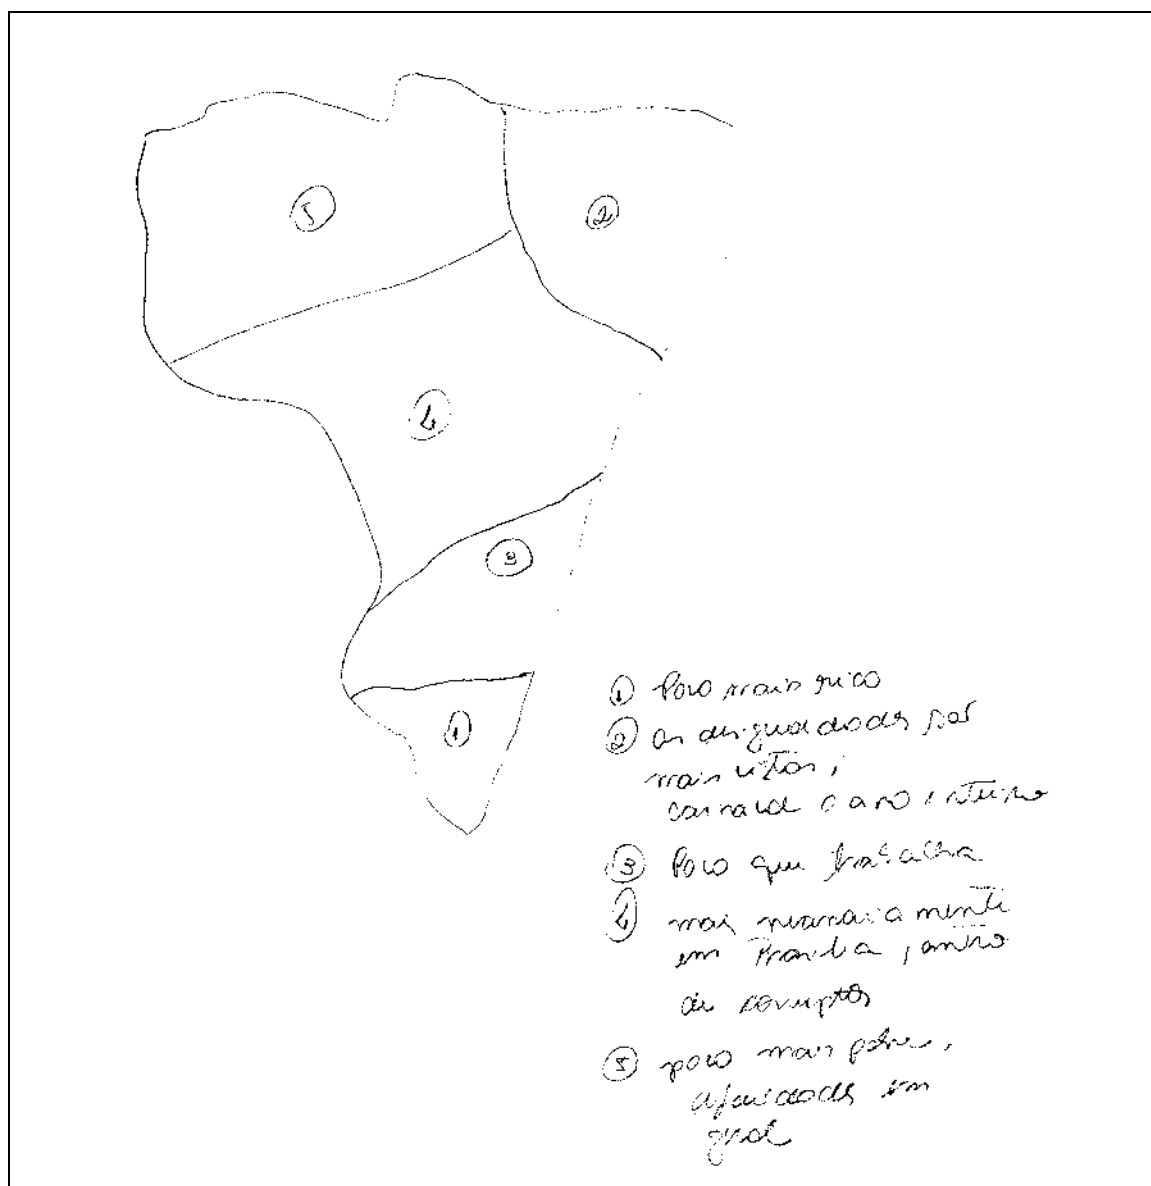 5
2
4
3
1
① Povo mais rico
② as desigualdades são
mais vistas,
carnaval o ano inteiro
③ Povo que trabalha
4 mais
em Brasília, antro
de corruptos
⑤ povo mais pobre,
em
geral